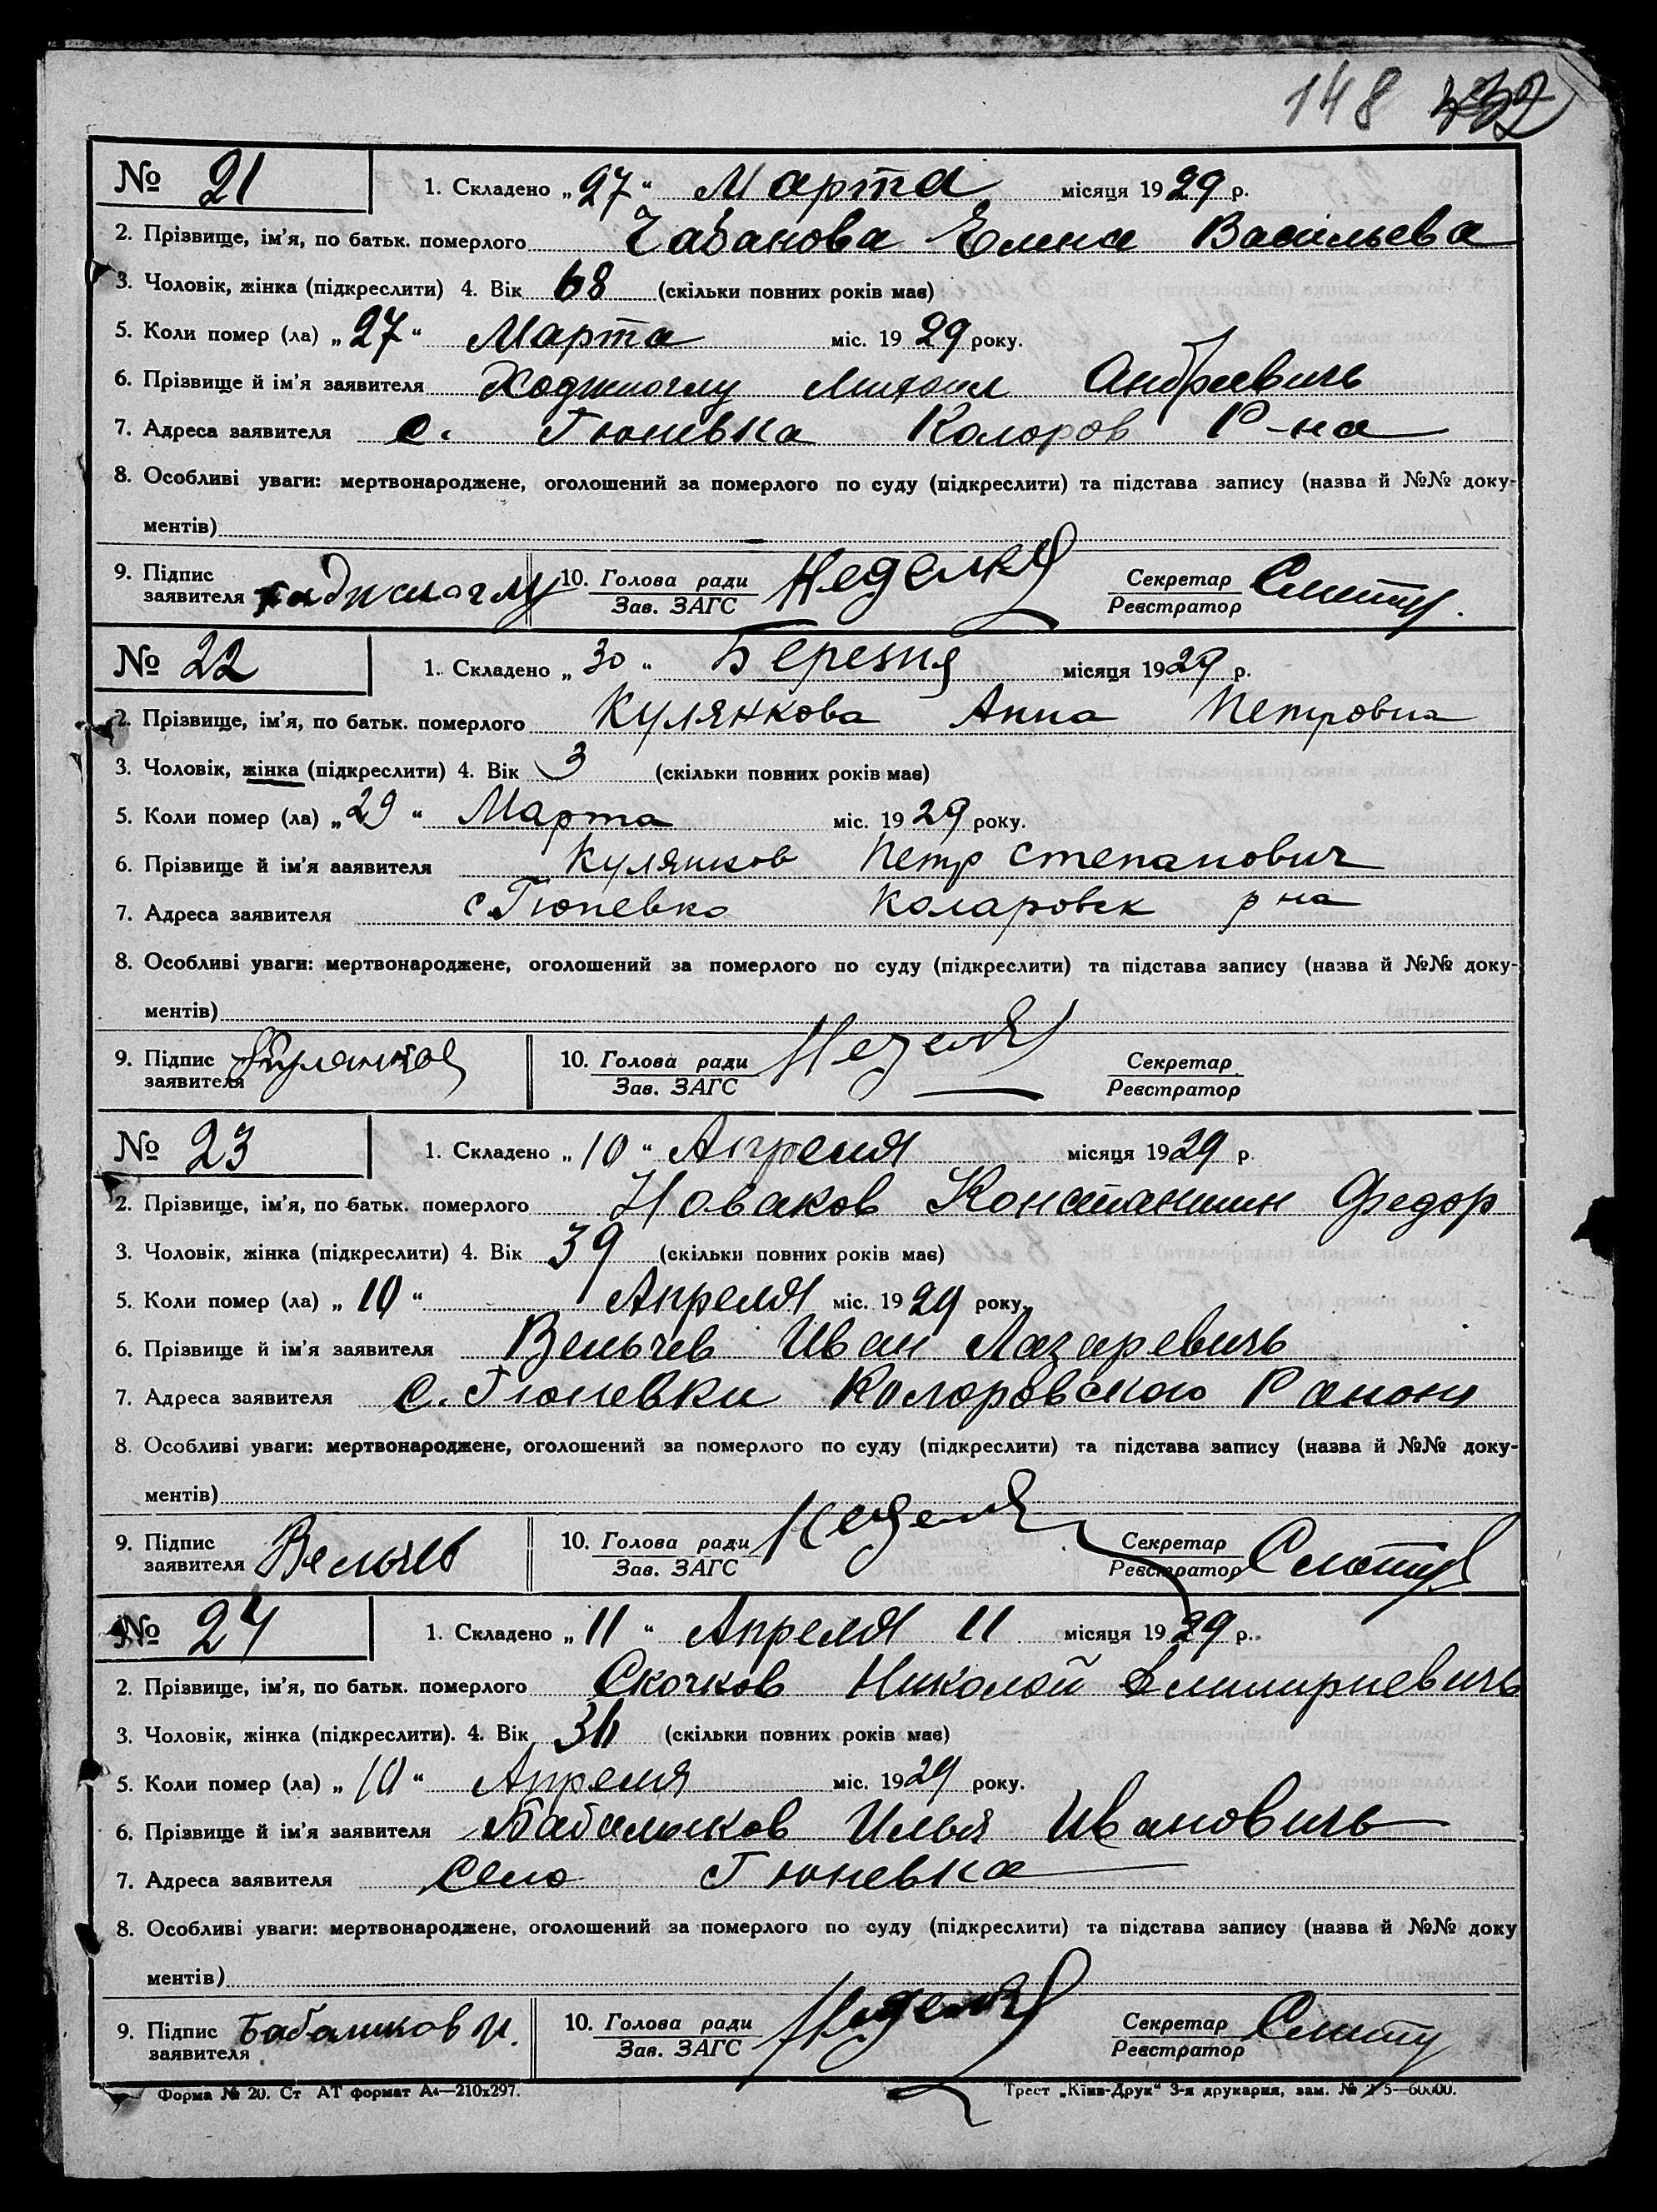 148
№ 21 1. Складено „27“ Марта місяця 1929 р.
2. Прізвище, ім'я, по батьк. померлого Чабанова Елена Васильева
3. Чоловік, жінка (підкреслити) 4. Вік 68 (скільки повних років має)
5. Коли помер (ла) „27“ Марта міс. 1929 року.
6. Прізвище й ім'я заявителя Ходжиоглу Михаил Андреевичь
7. Адреса заявителя с. Гюневка Колоров Р-на
8. Особливі уваги: мертвонароджене, оголошений за померлого по суду (підкреслити) та підстава запису (назва й №№ доку-
ментів)
9. Підпис заявителя 10. Голова ради Зав. ЗАГС Неделку Секретар Реєстратор
№ 22 1. Складено „30“ Березня місяця 1929 р.
2. Прізвище, ім'я, по батьк. померлого Кулянкова Анна Петровна
3. Чоловік, жінка (підкреслити) 4. Вік 3 (скільки повних років має)
5. Коли помер (ла) „29“ Марта міс. 1929 року.
6. Прізвище й ім'я заявителя Кулянков Петр Степанович
7. Адреса заявителя с. Гюневка Коларовск р на
8. Особливі уваги: мертвонароджене, оголошений за померлого по суду (підкреслити) та підстава запису (назва й №№ доку-
ментів)
9. Підпис заявителя Кулянков 10. Голова ради Зав. ЗАГС Секретар Реєстратор
№ 23 1. Складено „10“ Апреля місяця 1929 р
2. Прізвище, ім'я, по батьк. померлого Новаков Константин Федор
3. Чоловік, жінка (підкреслити) 4. Вік 39 (скільки повних років має)
5. Коли помер (ла) „10“ Апреля міс. 1929 року.
6. Прізвище й ім'я заявителя Вельчев Иван Лазаревичь
7. Адреса заявителя с. Гюневки Колоровского Раиона
8. Особливі уваги: мертвонароджене, оголошений за померлого по суду (підкреслити) та підстава запису (назва й №№ доку-
ментів)
9. Підпис заявителя Вельчев 10. Голова ради Зав. ЗАГС Секретар Реєстратор
№ 24 1. Складено „11“ Апреля 11 місяця 1929 р.
2. Прізвище, ім'я, по батьк. померлого Скочков Николой
3. Чоловік, жінка (підкреслити). 4. Вік (скільки повних років має)
5. Коли помер (ла) „10“ Апреля міс. 1929 року.
6. Прізвище й ім'я заявителя Илья Ивановичь
7. Адреса заявителя Село Гюневка
8. Особливі уваги: мертвонароджене, оголошений за померлого по суду (підкреслити) та підстава запису (назва й №№ доку
ментів)
9. Підпис заявителя 10. Голова ради Зав. ЗАГС Секретар Реєстратор
Форма № 20. Ст АТ формат А4—210х297. Трест „Київ-Друк“ 3-я друкарня, зам. №